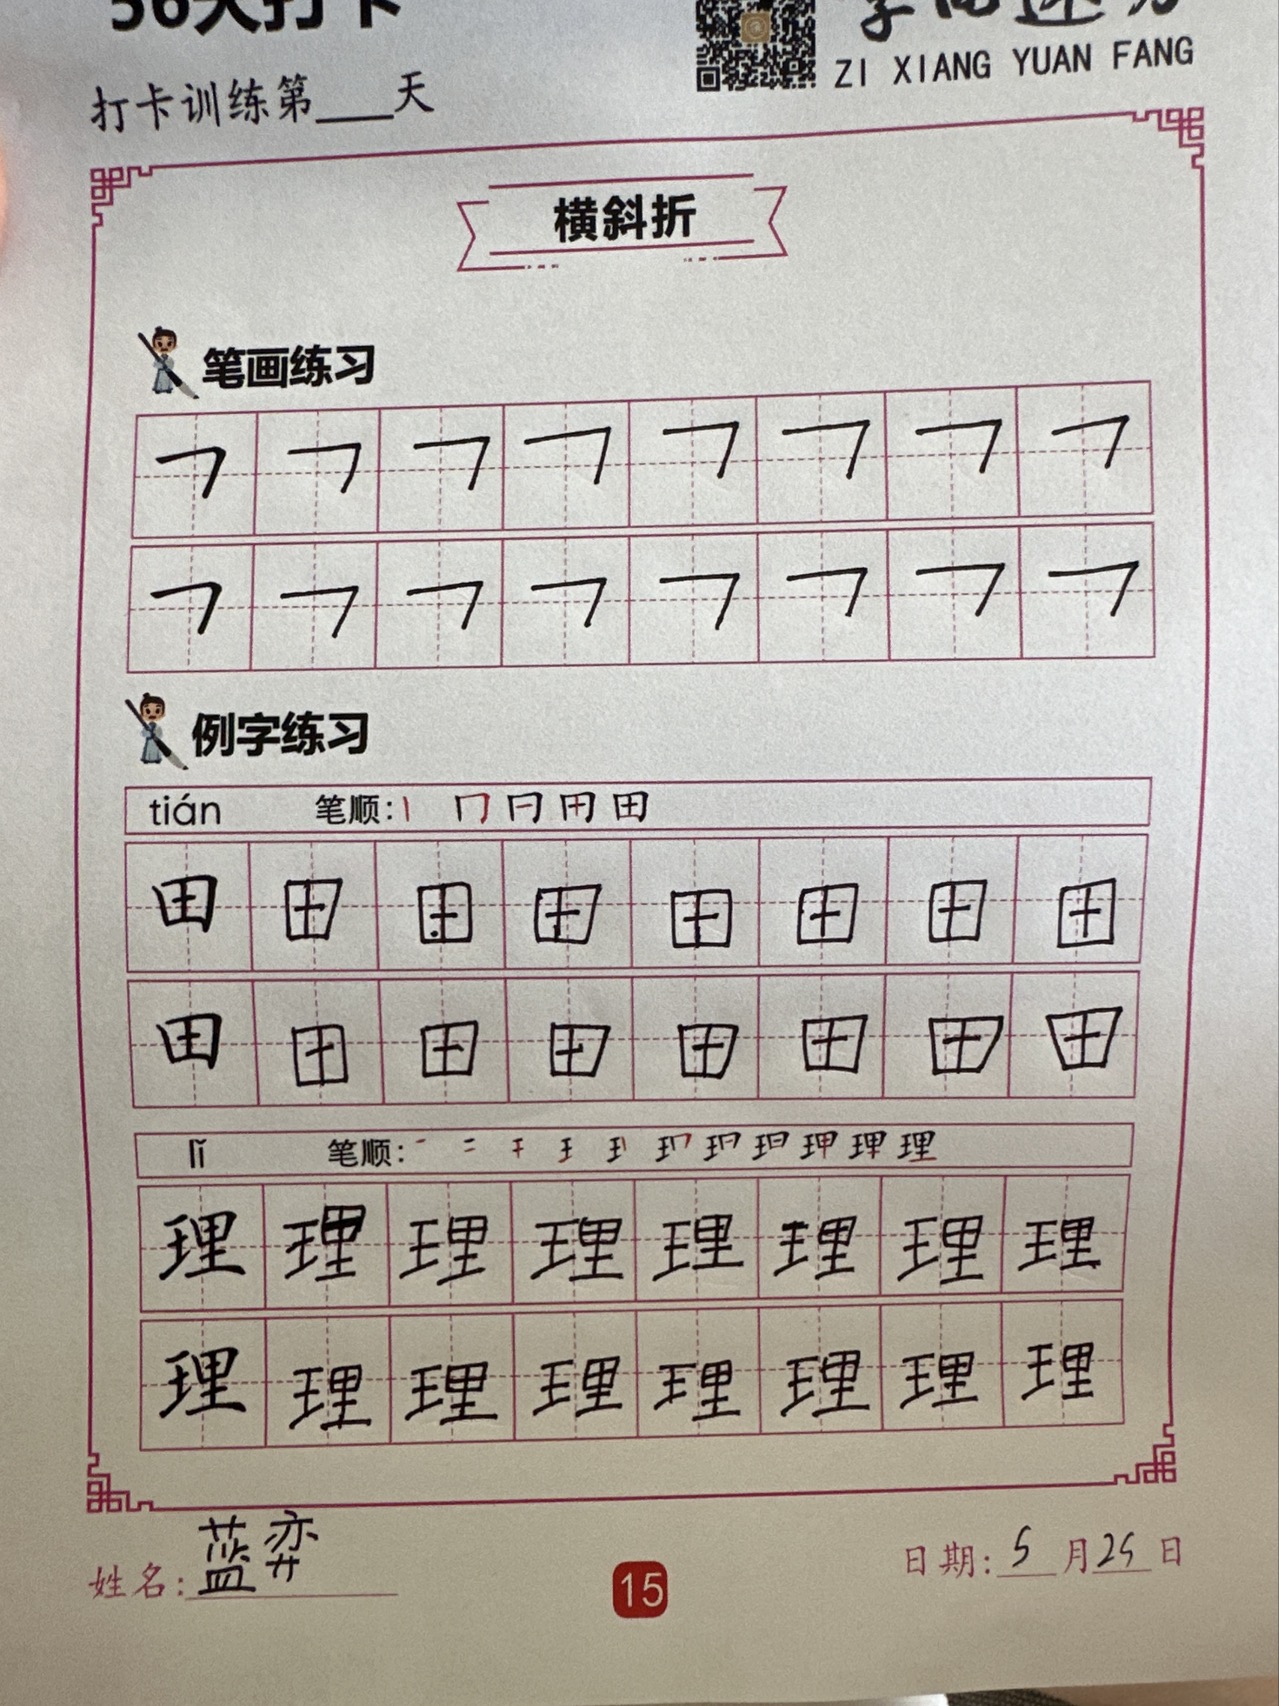 56天打卡
ZI XIANG YUAN FANG
打卡训练第___天
横斜折
笔画练习
㇕ ㇕ ㇕ ㇕ ㇕ ㇕ ㇕ ㇕
㇕ ㇕ ㇕ ㇕ ㇕ ㇕ ㇕ ㇕
例字练习
tián 笔顺: 田
田 田 田 田 田 田 田 田
田 田 田 田 田 田 田 田
lǐ 笔顺: 理
理 理 理 理 理 理 理 理
理 理 理 理 理 理 理 理
姓名: 蓝弈
15
日期: 5月25日